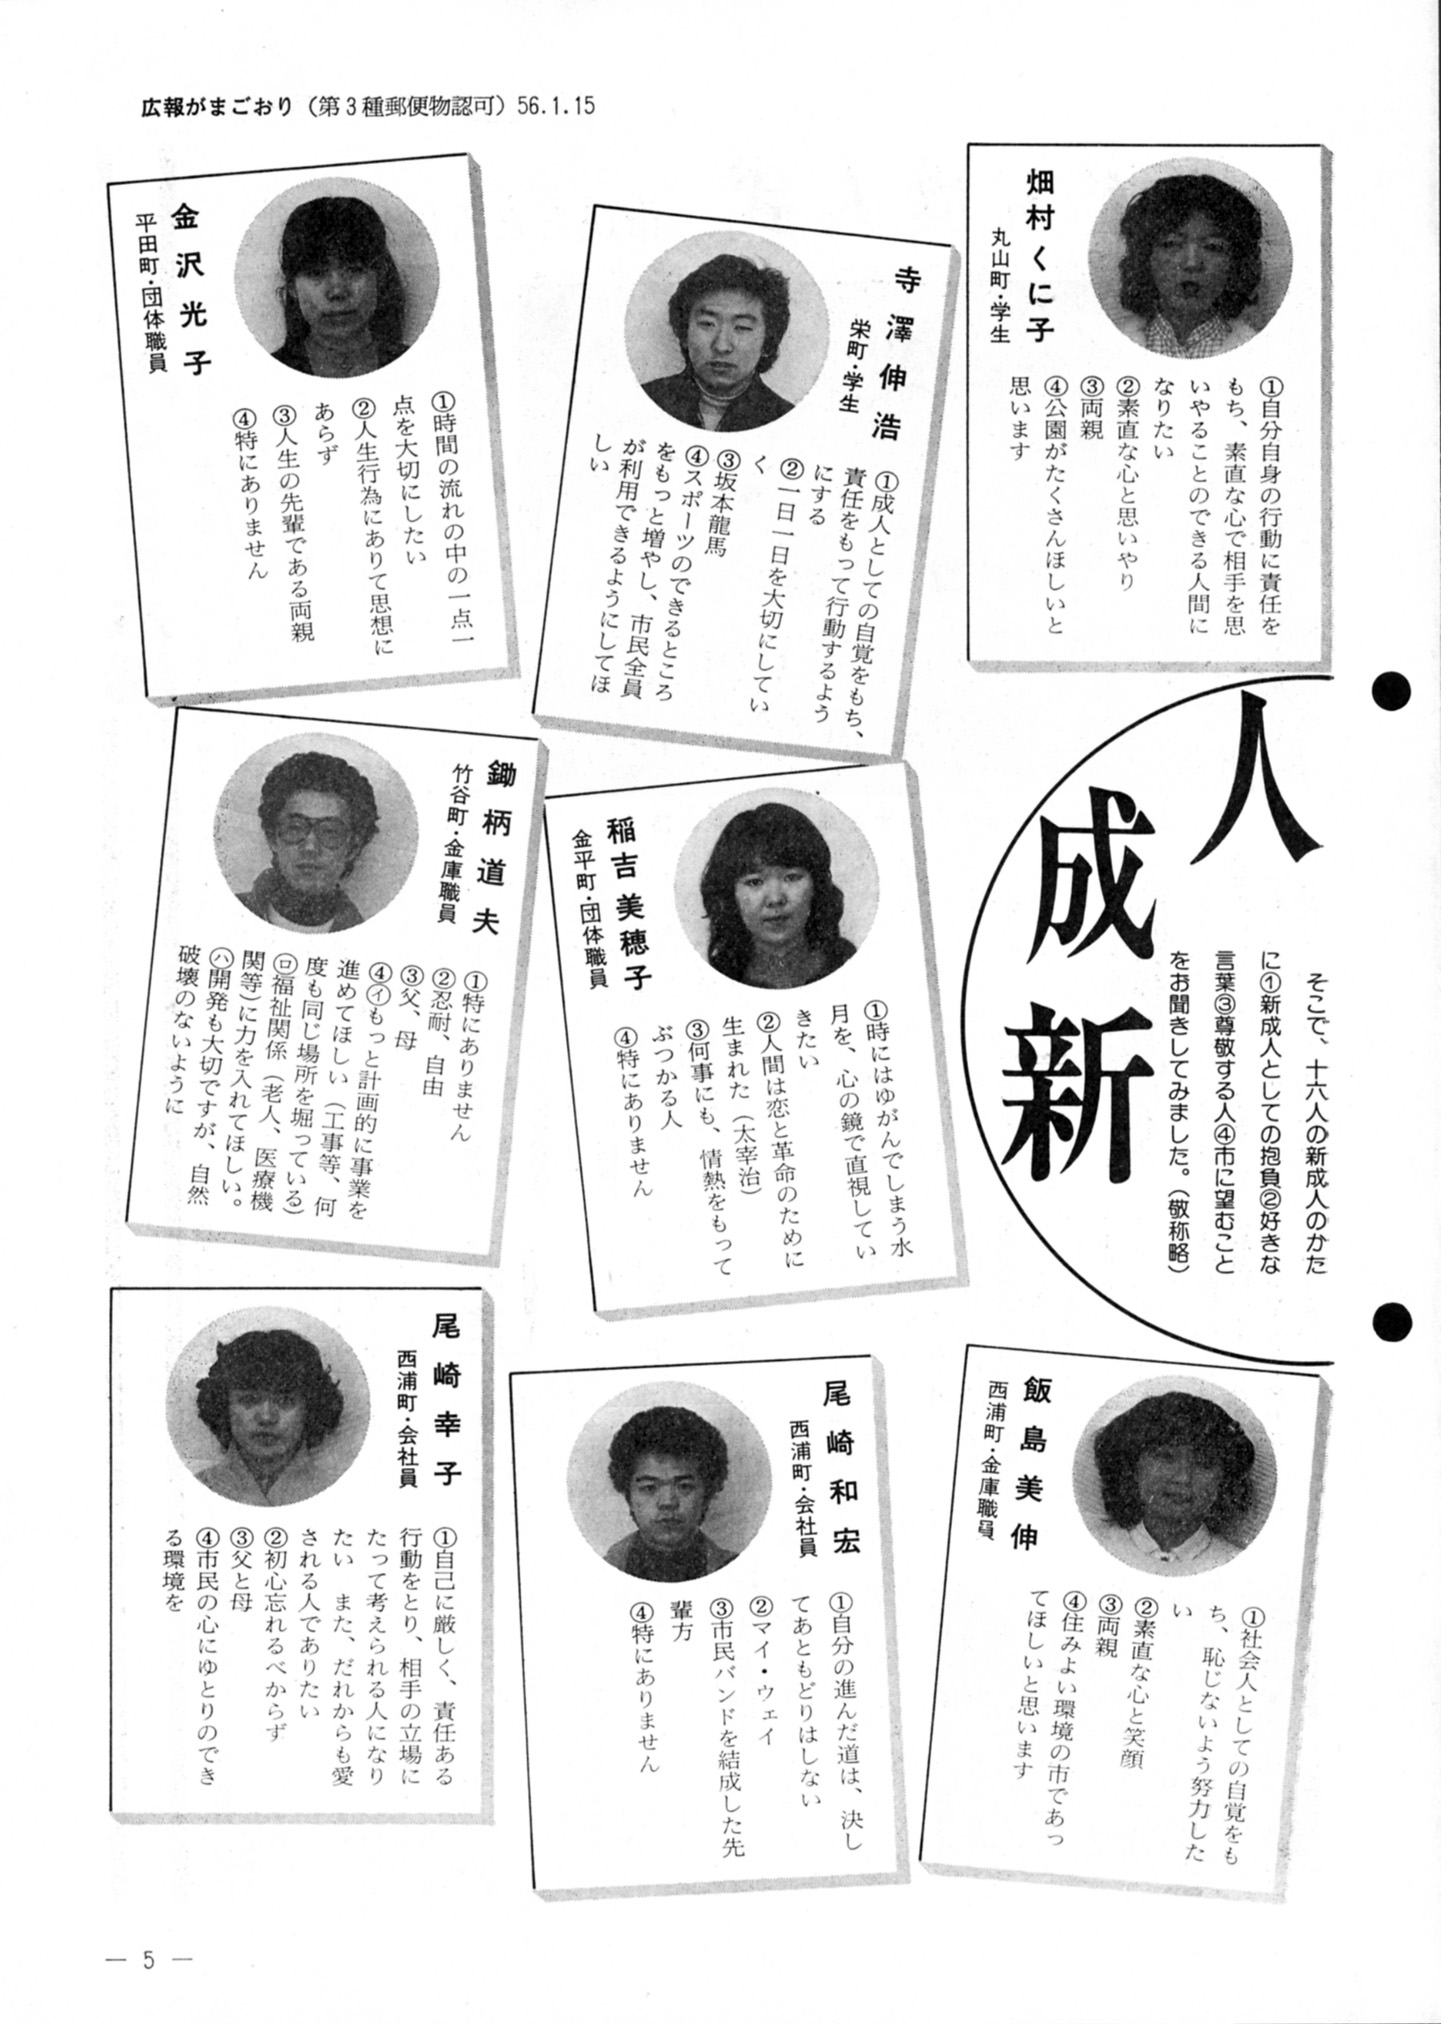 広報がまごおり（第3種郵便物認可）56.1.15
人
成
新
そこで、十六人の新成人のかた
に①新成人としての抱負②好きな
言葉③尊敬する人④市に望むこと
をお聞きしてみました。（敬称略）
畑村くに子
丸山町・学生
①自分自身の行動に責任を
もち、素直な心で相手を思
いやることのできる人間に
なりたい
②素直な心と思いやり
③両親
④公園がたくさんほしいと
思います
寺澤伸浩
栄町・学生
①成人としての自覚をもち、
責任をもって行動するよう
にする
②一日一日を大切にしてい
く
③坂本龍馬
④スポーツのできるところ
をもっと増やし、市民全員
が利用できるようにしてほ
しい
金沢光子
平田町・団体職員
①時間の流れの中の一点一
点を大切にしたい
②人生行為にありて思想に
あらず
③人生の先輩である両親
④特にありません
稲吉美穂子
金平町・団体職員
①時にはゆがんでしまう水
月を、心の鏡で直視してい
きたい
②人間は恋と革命のために
生まれた（太宰治）
③何事にも、情熱をもって
ぶつかる人
④特にありません
鋤柄道夫
竹谷町・金庫職員
①特にありません
②忍耐、自由
③父、母
④㋑もっと計画的に事業を
進めてほしい（工事等、何
度も同じ場所を堀っている）
㋺福祉関係（老人、医療機
関等）に力を入れてほしい。
㋩開発も大切ですが、自然
破壊のないように
飯島美伸
西浦町・金庫職員
①社会人としての自覚をも
ち、恥じないよう努力した
い
②素直な心と笑顔
③両親
④住みよい環境の市であっ
てほしいと思います
尾崎和宏
西浦町・会社員
①自分の進んだ道は、決し
てあともどりはしない
②マイ・ウェイ
③市民バンドを結成した先
輩方
④特にありません
尾崎幸子
西浦町・会社員
①自己に厳しく、責任ある
行動をとり、相手の立場に
たって考えられる人になり
たい　また、だれからも愛
される人でありたい
②初心忘れるべからず
③父と母
④市民の心にゆとりのでき
る環境を
— 5 —